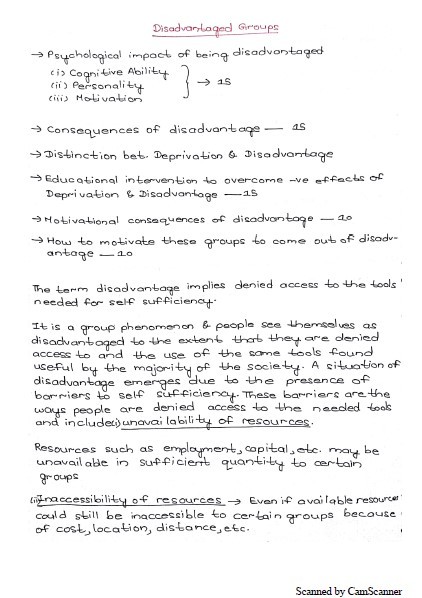 Disadvantaged Groups
→ Psychological impact of being disadvantaged
(i) Cognitive Ability
(ii) Personality → 15
(iii) Motivation
→ Consequences of disadvantage — 15
→ Distinction bet. Deprivation & Disadvantage
→ Educational intervention to overcome -ve effects of
Deprivation & Disadvantage — 15
→ Motivational consequences of disadvantage — 10
→ How to motivate these groups to come out of disadv-
antage — 10
The term disadvantage implies denied access to the tools
needed for self sufficiency.
It is a group phenomenon & people see themselves as
disadvantaged to the extent that they are denied
access to and the use of the same tools found
useful by the majority of the society. A situation of
disadvantage emerges due to the presence of
barriers to self sufficiency. These barriers are the
ways people are denied access to the needed tools
and include (i) unavailability of resources.
Resources such as employment, capital, etc. may be
unavailable in sufficient quantity to certain
groups
(ii) Inaccessibility of resources → Even if available resources
could still be inaccessible to certain groups because
of cost, location, distance, etc.
Scanned by CamScanner